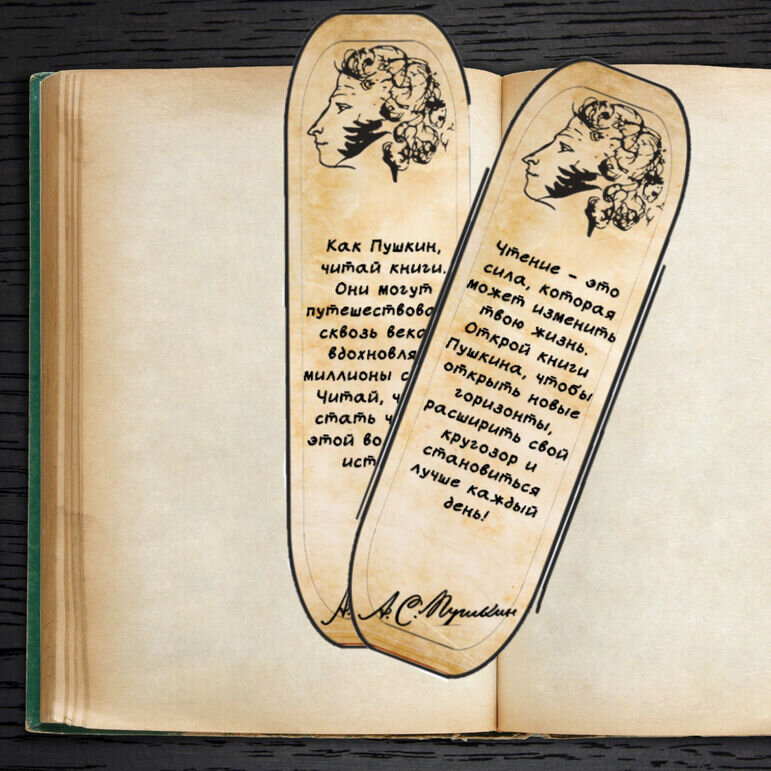 Как Пушкин,
читай книги.
Они могут
сквозь
миллионы
Читай,
стать
этой
А.
Чтение – это
сила, которая
может изменить
твою жизнь.
Открой книги
Пушкина, чтобы
открыть новые
горизонты,
расширить свой
кругозор и
становиться
лучше каждый
день!
А.С.Пушкин